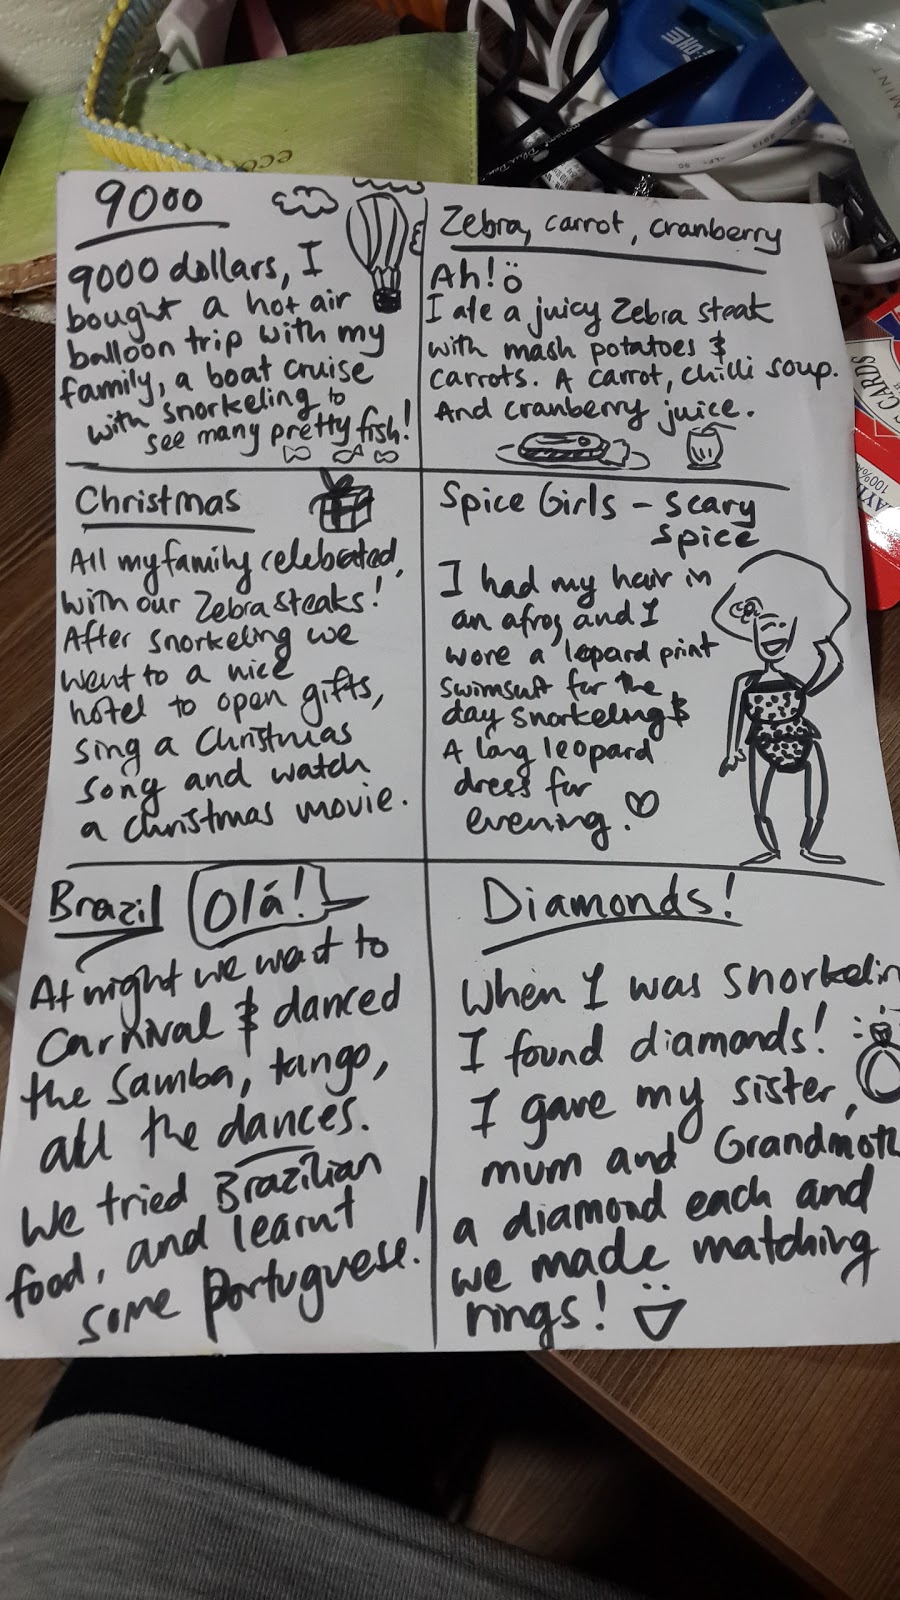 9000
9000 dollars, I
bought a hot air
balloon trip with my
family, a boat cruise
with snorkeling to
see many pretty fish!
Zebra, carrot, cranberry
Ah!
I ate a juicy Zebra steak
with mash potatoes &
carrots. A carrot, chilli soup.
And cranberry juice.
Christmas
All my family celebrated,
with our Zebra steaks!
After snorkeling we
went to a nice
hotel to open gifts,
sing a Christmas
song and watch
a christmas movie.
Spice Girls - Scary
Spice
I had my hair in
an afro, and I
wore a lepard print
swimsuit for the
day snorkeling &
A long leopard
dress for
evening.
Brazil
Olá!
At night we went to
Carnival & danced
the Samba, tango,
all the dances.
We tried Brazilian
food, and learnt
some Portuguese!
Diamonds!
When I was snorkelin
I found diamonds!
I gave my sister,
mum and Grandmoth
a diamond each and
we made matching
rings!
eco
MINT
CARDS
100%